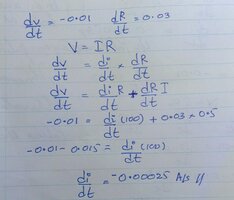 dv/dt = -0.01 dR/dt = 0.03
V = IR
dv/dt = di/dt × dR/dt
dv/dt = di/dt R + dR/dt I
-0.01 = di/dt (100) + 0.03 × 0.5
-0.01 - 0.015 = di/dt (100)
di/dt = -0.00025 A/s //